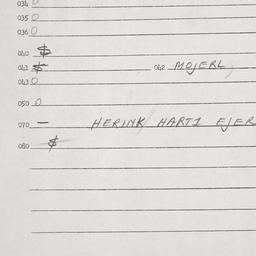 034 0
035 0
036 0
040 $
041 $ 042 MOJERL
043 0
050 0
070 — HERINK HARTI EJER
080 $